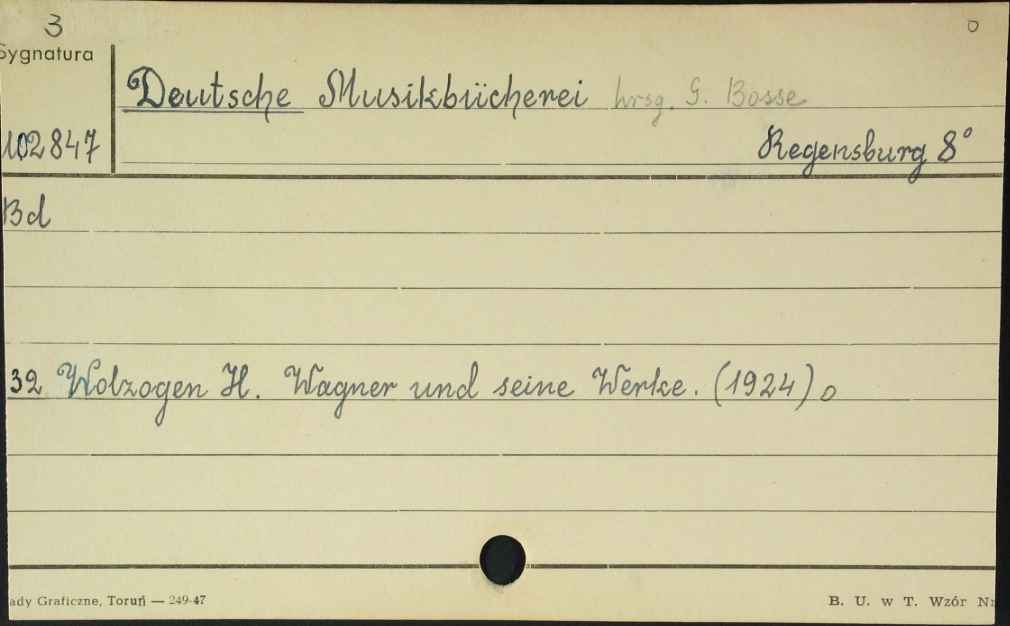 3 o
Sygnatura
Deutsche Musikbücherei hrsg. G. Bosse
102847 Regensburg 8°
Bd
32 Wolzogen H. Wagner und seine Werke. (1924) o
ady Graficzne, Toruń — 249-47 B. U. w T. Wzór N